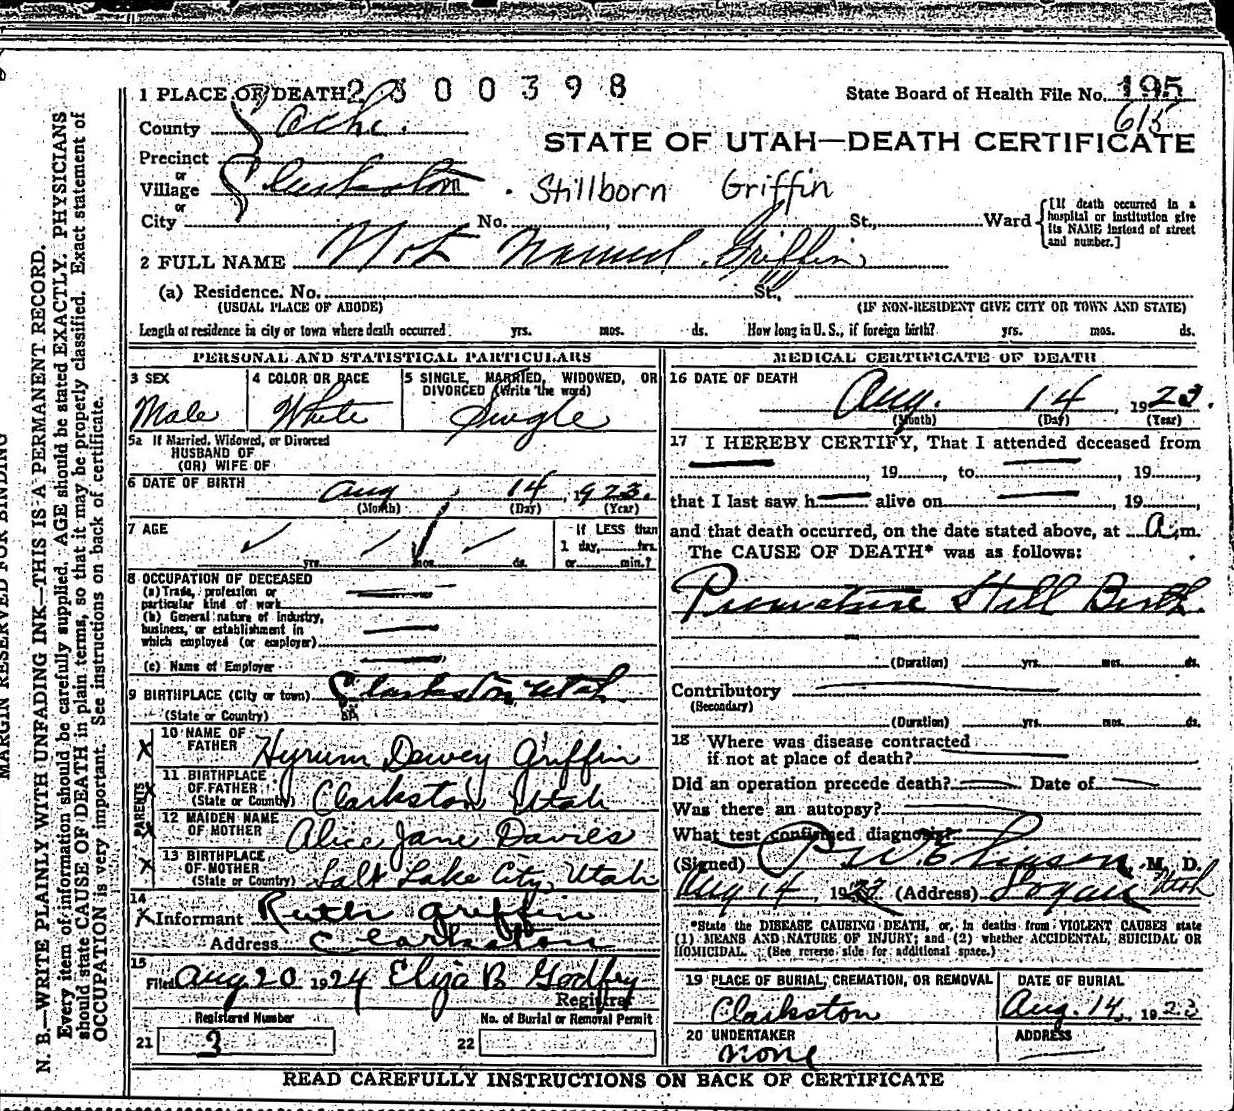 1 PLACE OF DEATH 2300398
State Board of Health File No. 195
615
County Cache.
STATE OF UTAH—DEATH CERTIFICATE
Precinct
or
Village Clarkston
Stillborn Griffin
or
City No. St., Ward
[If death occurred in a
hospital or institution give
its NAME instead of street
and number.]
2 FULL NAME Not Named Griffin
(a) Residence. No. St.,
(USUAL PLACE OF ABODE) (IF NON-RESIDENT GIVE CITY OR TOWN AND STATE)
Length of residence in city or town where death occurred yrs. mos. ds. How long in U. S., if foreign birth? yrs. mos. ds.
PERSONAL AND STATISTICAL PARTICULARS
3 SEX 4 COLOR OR RACE 5 SINGLE, MARRIED, WIDOWED, OR
DIVORCED (Write the word)
Male White Single
5a If Married, Widowed, or Divorced
HUSBAND OF
(OR) WIFE OF
6 DATE OF BIRTH Aug 14, 1923.
(Month) (Day) (Year)
7 AGE If LESS than
yrs. mos. ds. 1 day, hrs.
or min.?
8 OCCUPATION OF DECEASED
(a) Trade, profession or
particular kind of work
(b) General nature of industry,
business, or establishment in
which employed (or employer)
(c) Name of Employer
9 BIRTHPLACE (City or town) Clarkston, Utah
(State or Country)
PARENTS
10 NAME OF
FATHER Hyrum Dewey Griffin
11 BIRTHPLACE
OF FATHER
(State or Country) Clarkston Utah
12 MAIDEN NAME
OF MOTHER Alice Jane Davies
13 BIRTHPLACE
OF MOTHER
(State or Country) Salt Lake City, Utah
14
Informant Ruth Griffin
Address Clarkston
15
Filed Aug 20 1924 Eliza B Godfry
Registrar
Registered Number No. of Burial or Removal Permit
21 3 22
MEDICAL CERTIFICATE OF DEATH
16 DATE OF DEATH
Aug. 14, 1923.
(Month) (Day) (Year)
17 I HEREBY CERTIFY, That I attended deceased from
, 19, to , 19,
that I last saw h alive on , 19
and that death occurred, on the date stated above, at a.m.
The CAUSE OF DEATH* was as follows:
Premature Still Birth.
(Duration) yrs. mos. ds.
Contributory
(Secondary)
(Duration) yrs. mos. ds.
18 Where was disease contracted
if not at place of death?
Did an operation precede death? Date of
Was there an autopsy?
What test confirmed diagnosis?
(Signed) M. D.
Aug 14, 19 (Address) Logan Utah
*State the DISEASE CAUSING DEATH, or, in deaths from VIOLENT CAUSES state
(1) MEANS AND NATURE OF INJURY; and (2) whether ACCIDENTAL, SUICIDAL OR
HOMICIDAL. (See reverse side for additional space.)
19 PLACE OF BURIAL, CREMATION, OR REMOVAL DATE OF BURIAL
Clarkston Aug. 14, 1923
20 UNDERTAKER ADDRESS
none
READ CAREFULLY INSTRUCTIONS ON BACK OF CERTIFICATE
MARGIN RESERVED FOR BINDING
N. B.—WRITE PLAINLY WITH UNFADING INK—THIS IS A PERMANENT RECORD.
Every item of information should be carefully supplied. AGE should be stated EXACTLY. PHYSICIANS
should state CAUSE OF DEATH in plain terms, so that it may be properly classified. Exact statement of
OCCUPATION is very important. See instructions on back of certificate.